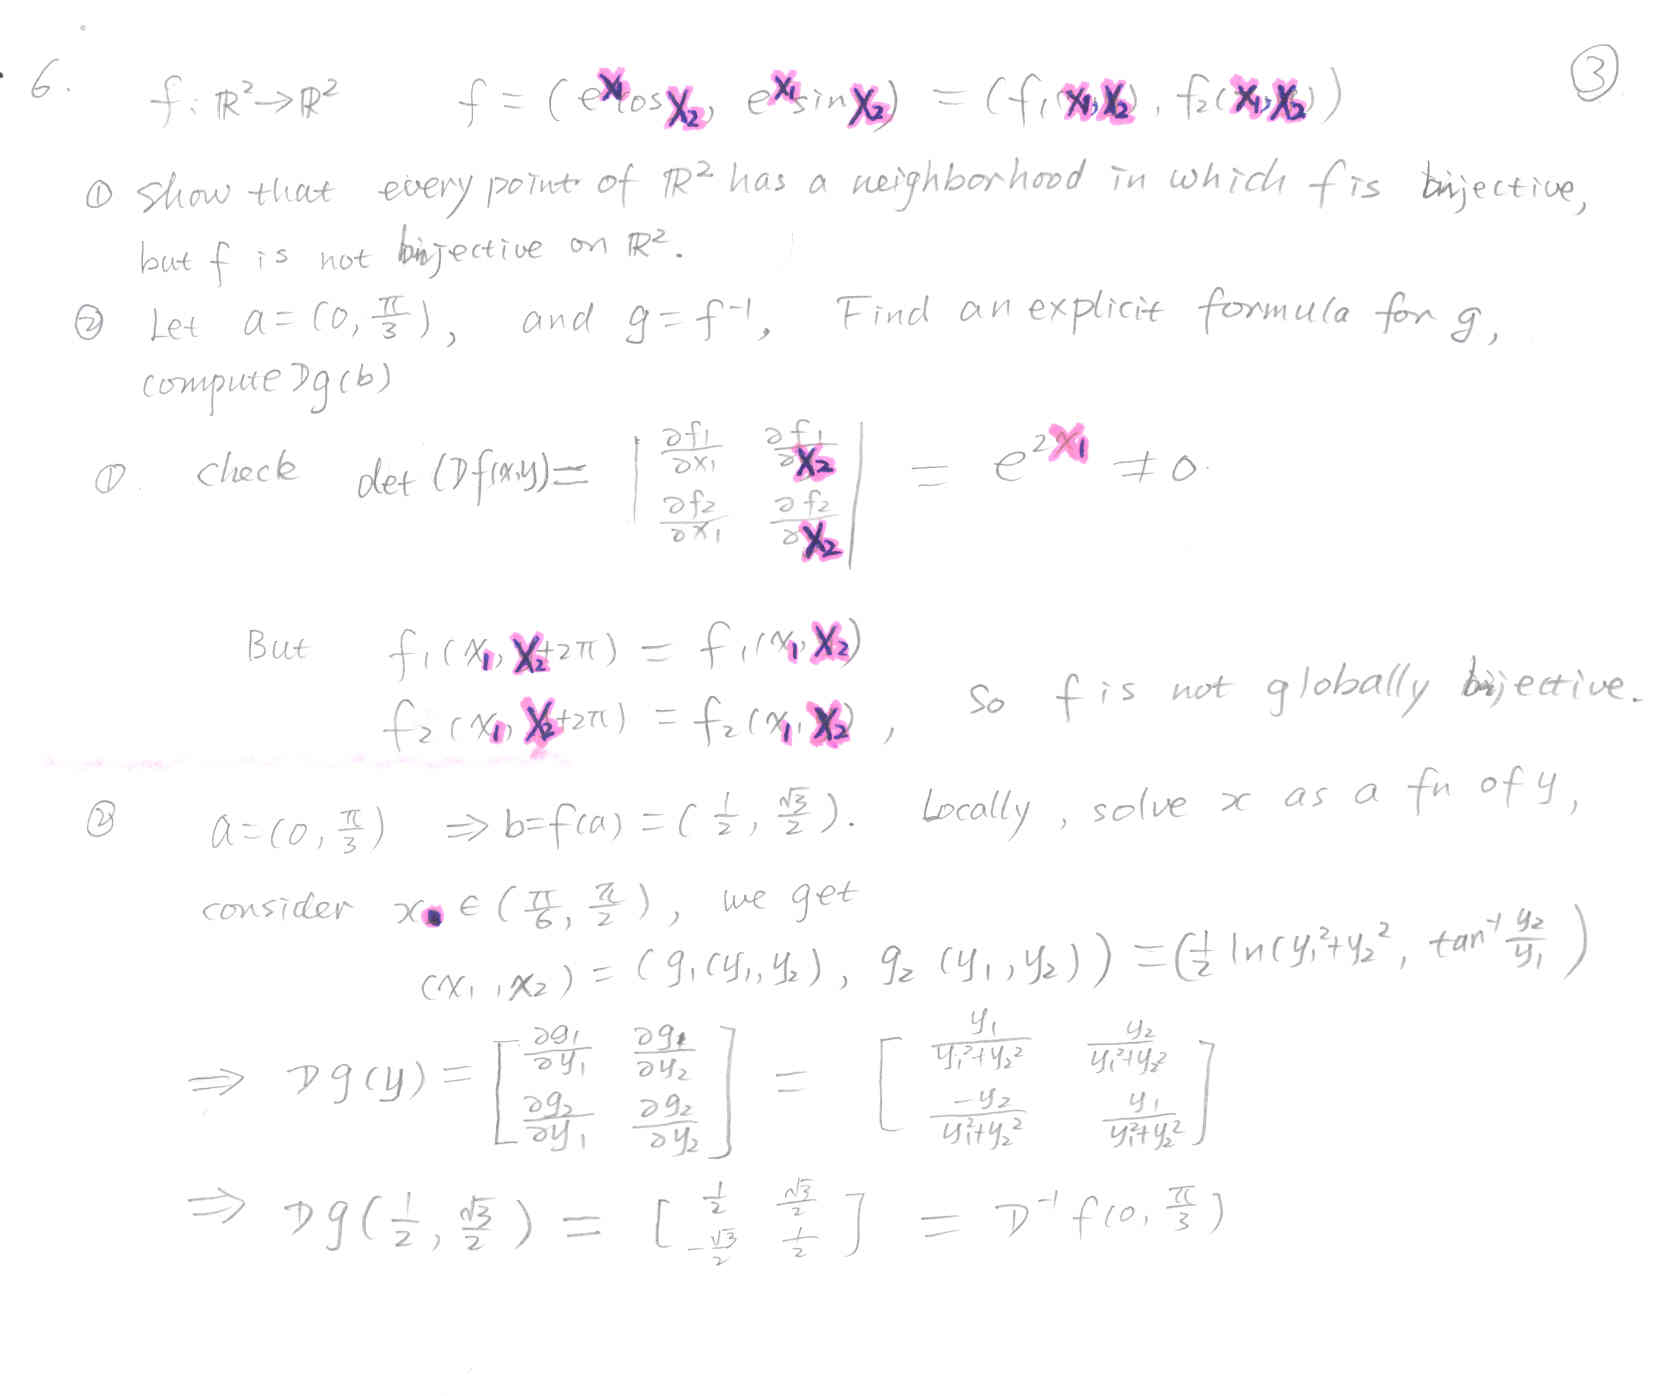 6. f: ℝ²→ℝ² f = (e^{x₁}cos x₂, e^{x₁}sin x₂) = (f₁(x₁,x₂), f₂(x₁,x₂)) ③
① Show that every point of ℝ² has a neighborhood in which f is bijective,
but f is not bijective on ℝ².
② Let a = (0, π/3), and g = f⁻¹, Find an explicit formula for g,
compute Dg(b)
①. Check det (Df(x,y)) = | ∂f₁/∂x₁ ∂f₁/∂x₂ ; ∂f₂/∂x₁ ∂f₂/∂x₂ | = e^{2x₁} ≠ 0.
But f₁(x₁, x₂+2π) = f₁(x₁, x₂)
f₂(x₁, x₂+2π) = f₂(x₁, x₂), So f is not globally bijective.
② a = (0, π/3) ⇒ b = f(a) = (1/2, √3/2). Locally, solve x as a fn of y,
consider x ∈ (π/6, π/2), we get
(x₁, x₂) = (g₁(y₁, y₂), g₂(y₁, y₂)) = (1/2 ln(y₁²+y₂², tan⁻¹ y₂/y₁)
⇒ Dg(y) = [ ∂g₁/∂y₁ ∂g₁/∂y₂ ; ∂g₂/∂y₁ ∂g₂/∂y₂ ] = [ y₁/(y₁²+y₂²) y₂/(y₁²+y₂²) ; -y₂/(y₁²+y₂²) y₁/(y₁²+y₂²) ]
⇒ Dg(1/2, √3/2) = [ 1/2 √3/2 ; -√3/2 1/2 ] = D⁻¹f(0, π/3)